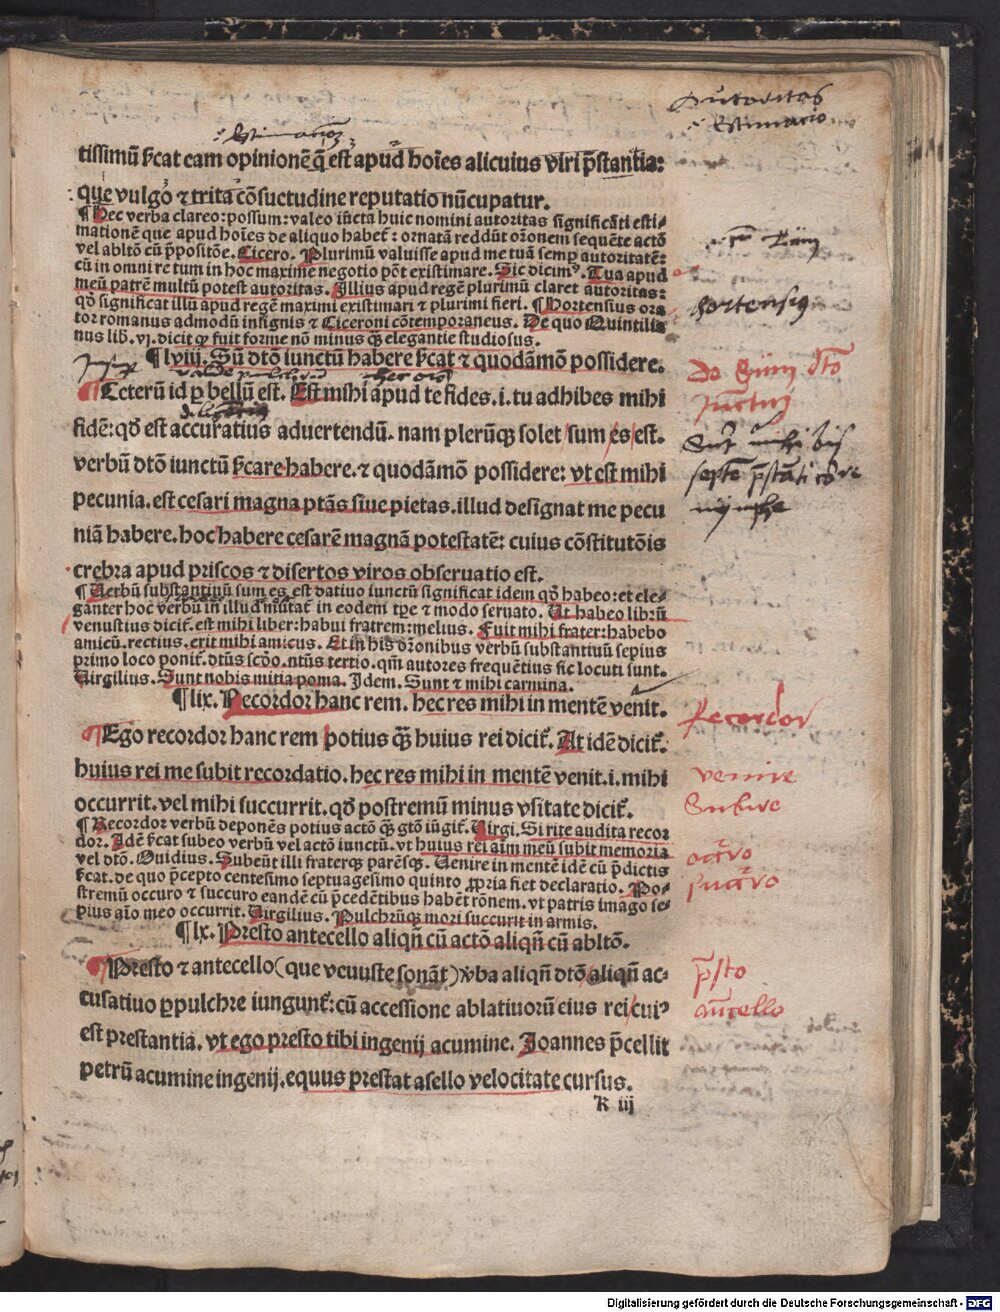 Autoritas
Estimacio
tissimũ ẜcat eam opinionẽ q̃ est apud hoĩes alicuius viri p̃stantia:
que vulgo ⁊ trita cõsuetudine reputatio nũcupatur.
¶ Hec verba clareo: possum: valeo iũcta huic nomini autoritas significãti esti⸗
mationẽ que apud hoĩes de aliquo habet᷑: ornatã reddũt or̃onem sequẽte actõ
vel abltõ cũ p̃positõe. Cicero. Plurimũ valuisse apud me tuã semp̱ autoritatẽ:
cũ in omni re tum in hoc maxime negotio põt existimare. Sic dicimꝰ. Tua apud
meũ patrẽ multũ potest autoritas. Illius apud regẽ plurimũ claret autoritas:
qð significat illũ apud regẽ maximi existimari ⁊ plurimi fieri. ¶ Hortensius ora
tor romanus admodũ insignis ⁊ Ciceroni cõtemporaneus. De quo Quintilia
nus lib. vj. dicit ꝙ fuit forme nõ minus q̃ elegantie studiosus.
Hortensiꝰ
¶ lviij. Sũ dtõ iunctũ habere ẜcat ⁊ quodãmõ possidere.
De Sum dtõ
iunctũ
¶ Ceterũ id ꝑ bellũ est. Est mihi apud te fides. i. tu adhibes mihi
fidẽ: qð est accuratius aduertendũ. nam plerũqꝫ solet sum es est.
verbũ dtõ iunctũ ẜcare habere. ⁊ quodãmõ possidere: vt est mihi
pecunia. est cesari magna ptãs siue pietas. illud designat me pecu
niã habere. hoc habere cesarẽ magnã potestatẽ: cuius cõstitutõis
crebra apud priscos ⁊ disertos viros obseruatio est.
Sũt mihi bis
septẽ p̃stãti cor̃e
nymphe
¶ Verbũ substantiuũ sum es est datiuo iunctũ significat idem qð habeo: et ele⸗
ganter hoc verbũ in illud mutat᷑ in eodem tp̃e ⁊ modo seruato. Ut habeo librũ
venustius dicit᷑. est mihi liber: habui fratrem: melius. Fuit mihi frater: habebo
amicũ. rectius. erit mihi amicus. Et in his or̃onibus verbũ substantiuũ sepius
primo loco ponit᷑. dtũs scðo. ntũs tertio. qm̃ autores frequẽtius sic locuti sunt.
Virgilius. Sunt nobis mitia poma. Idem. Sunt ⁊ mihi carmina.
¶ lix. Recordor hanc rem. hec res mihi in mentẽ venit.
Recordor
¶ Ego recordor hanc rem potius q̃ huius rei dicit᷑. At idẽ dicit᷑.
huius rei me subit recordatio. hec res mihi in mentẽ venit. i. mihi
occurrit. vel mihi succurrit. qð postremũ minus vsitate dicit᷑.
venire
Subire
¶ Recordor verbũ deponẽs potius actõ q̃ gtõ iũgit᷑. Virgi. Si rite audita recor
dor. Idẽ ẜcat subeo verbũ vel actõ iunctũ. vt huius rei aĩm meũ subit memoria
vel dtõ. Ouidius. Subeũt illi fraterqꝫ parẽsqꝫ. Uenire in mentẽ idẽ cũ p̃dictis
ẜcat. de quo p̃cepto centesimo septuagesimo quinto ꝓpria fiet declaratio. Po⸗
stremũ occuro ⁊ succuro eandẽ cũ p̃cedẽtibus habẽt rõnem. vt patris imago se⸗
pius aĩo meo occurrit. Virgilius. Pulchrũqꝫ mori succurit in armis.
occurro
succurro
¶ lx. Presto antecello aliqñ cũ actõ aliqñ cũ abltõ.
¶ Presto ⁊ antecello (que venuste sonãt) ṽba aliqñ dtõ aliqñ ac⸗
cusatiuo ꝑpulchre iungunt᷑: cũ accessione ablatiuorũ eius rei cuiꝰ
est prestantia. vt ego presto tibi ingenij acumine. Joannes p̃cellit
petrũ acumine ingenij. equus prestat asello velocitate cursus.
p̃sto
Antecello
K iij
Digitalisierung gefördert durch die Deutsche Forschungsgemeinschaft - DFG